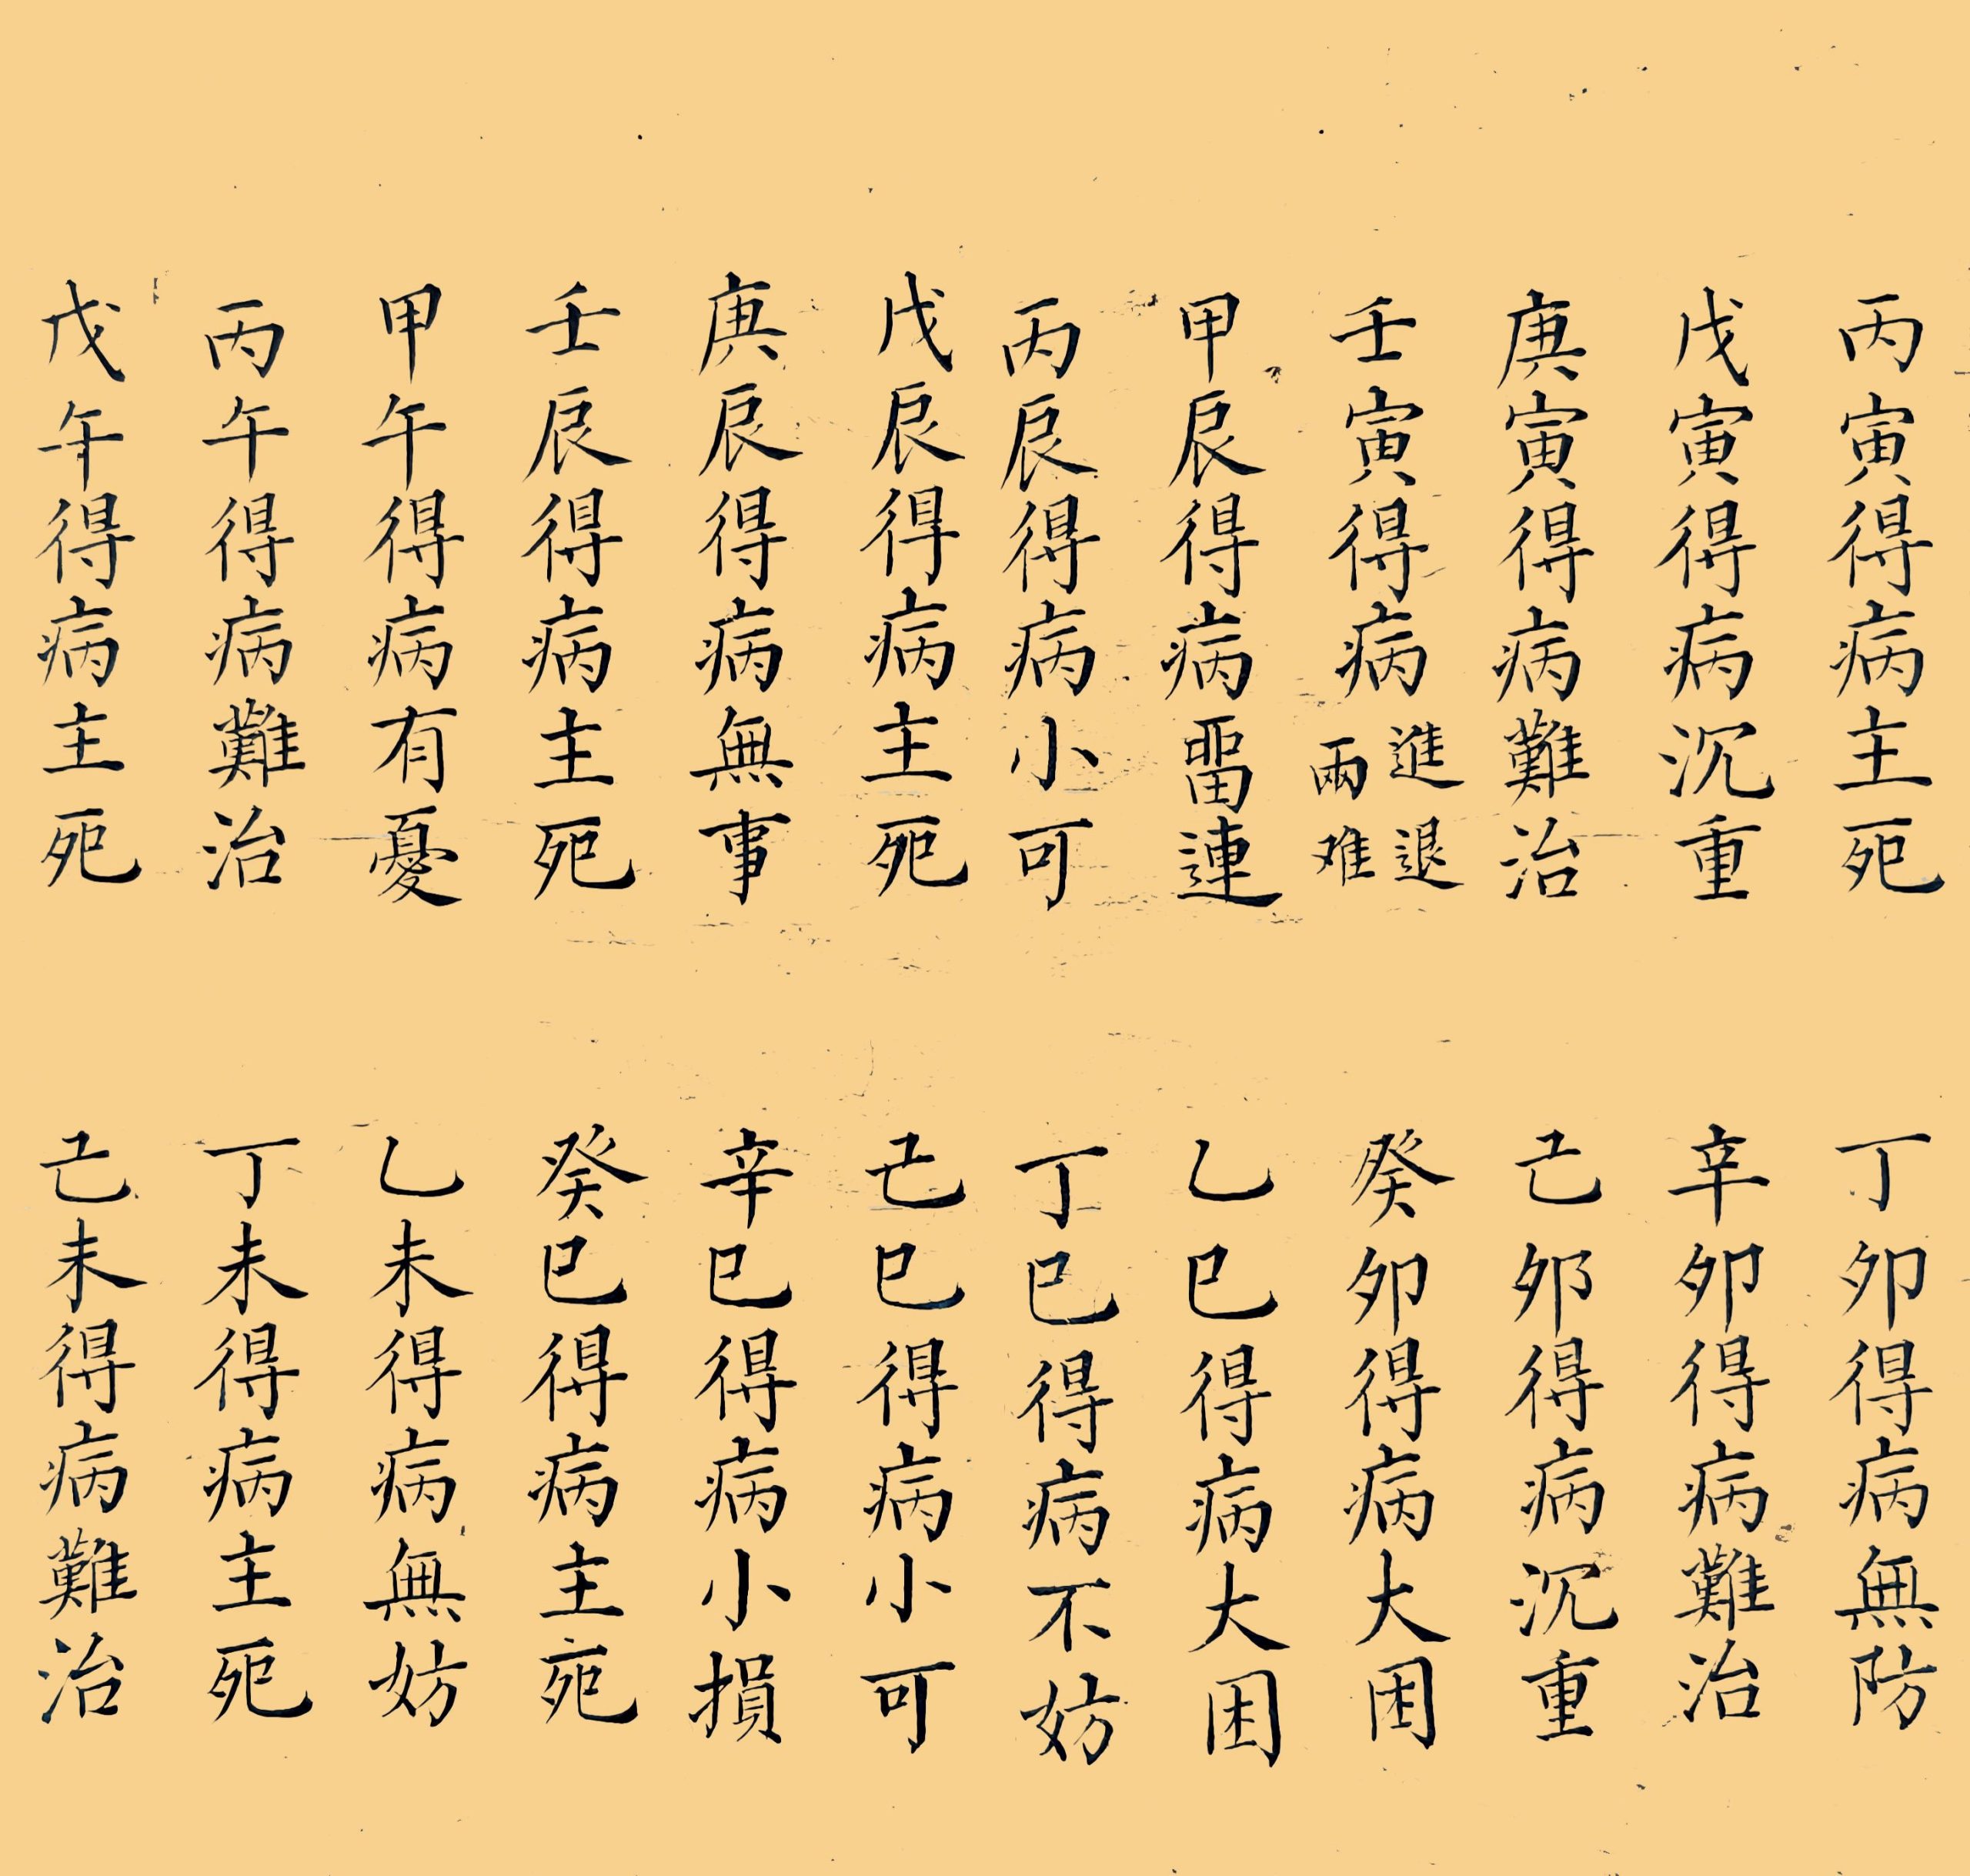 丙寅得病主死
戊寅得病沉重
庚寅得病難治
壬寅得病進退兩难
甲辰得病畱連
丙辰得病小可
戊辰得病主死
庚辰得病無事
壬辰得病主死
甲午得病有憂
丙午得病難治
戊午得病主死
丁卯得病無防
辛卯得病難治
己卯得病沉重
癸卯得病大困
乙巳得病大困
丁巳得病不妨
己巳得病小可
辛巳得病小損
癸巳得病主死
乙未得病無妨
丁未得病主死
己未得病難治